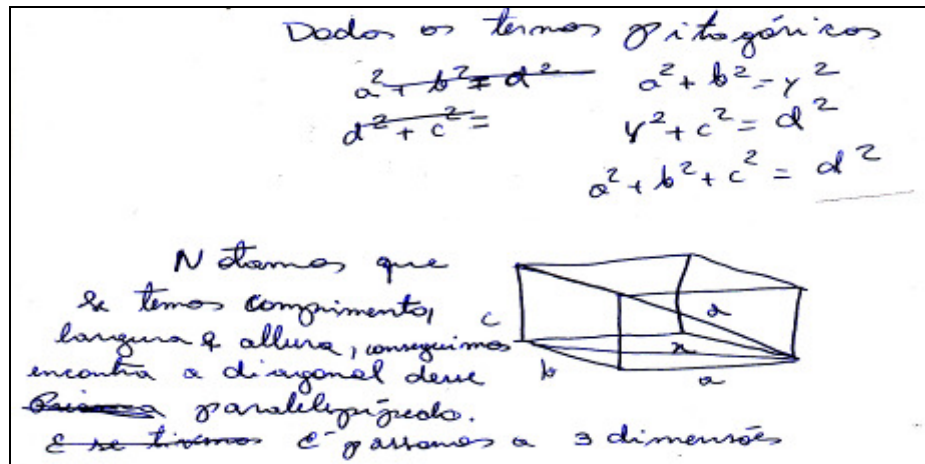 Dados os ternos pitagóricos
a² + b² = d² a² + b² = y²
d² + c² = y² + c² = d²
a² + b² + c² = d²
Notamos que
se temos comprimento,
largura e altura, conseguimos
encontra a diagonal desse
paralelepípedo.
E se tivemos E passamos a 3 dimensões
c
d
x
b
a